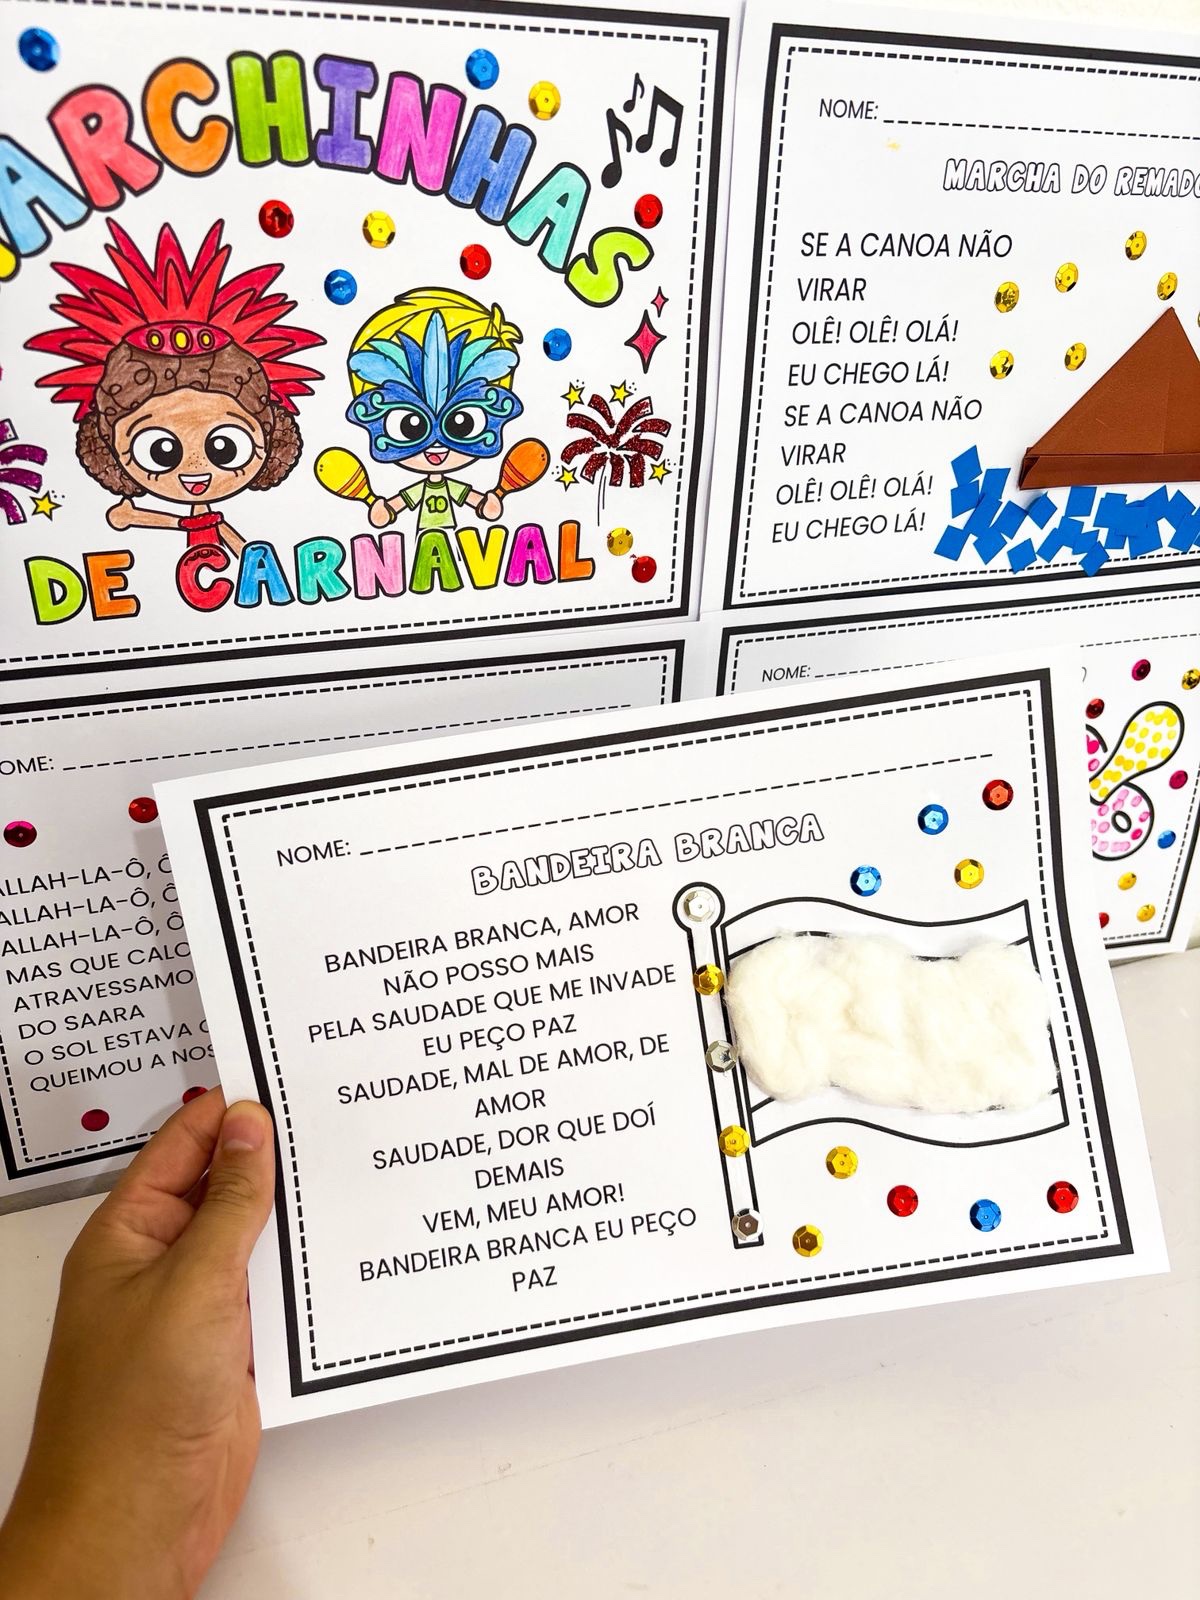 MARCHINHAS
DE CARNAVAL
10
NOME:
MARCHA DO
SE A CANOA NÃO
VIRAR
OLÊ! OLÊ! OLÁ!
EU CHEGO LÁ!
SE A CANOA NÃO
VIRAR
OLÊ! OLÊ! OLÁ!
EU CHEGO LÁ!
NOME:
ALLAH-LA-Ô,
ALLAH-LA-Ô,
ALLAH-LA-Ô,
MAS QUE
DO SAARA
O SOL ESTAVA
QUEIMOU A
NOME:
NOME:
BANDEIRA BRANCA
BANDEIRA BRANCA, AMOR
NÃO POSSO MAIS
PELA SAUDADE QUE ME INVADE
EU PEÇO PAZ
SAUDADE, MAL DE AMOR, DE
AMOR
SAUDADE, DOR QUE DOÍ
DEMAIS
VEM, MEU AMOR!
BANDEIRA BRANCA EU PEÇO
PAZ